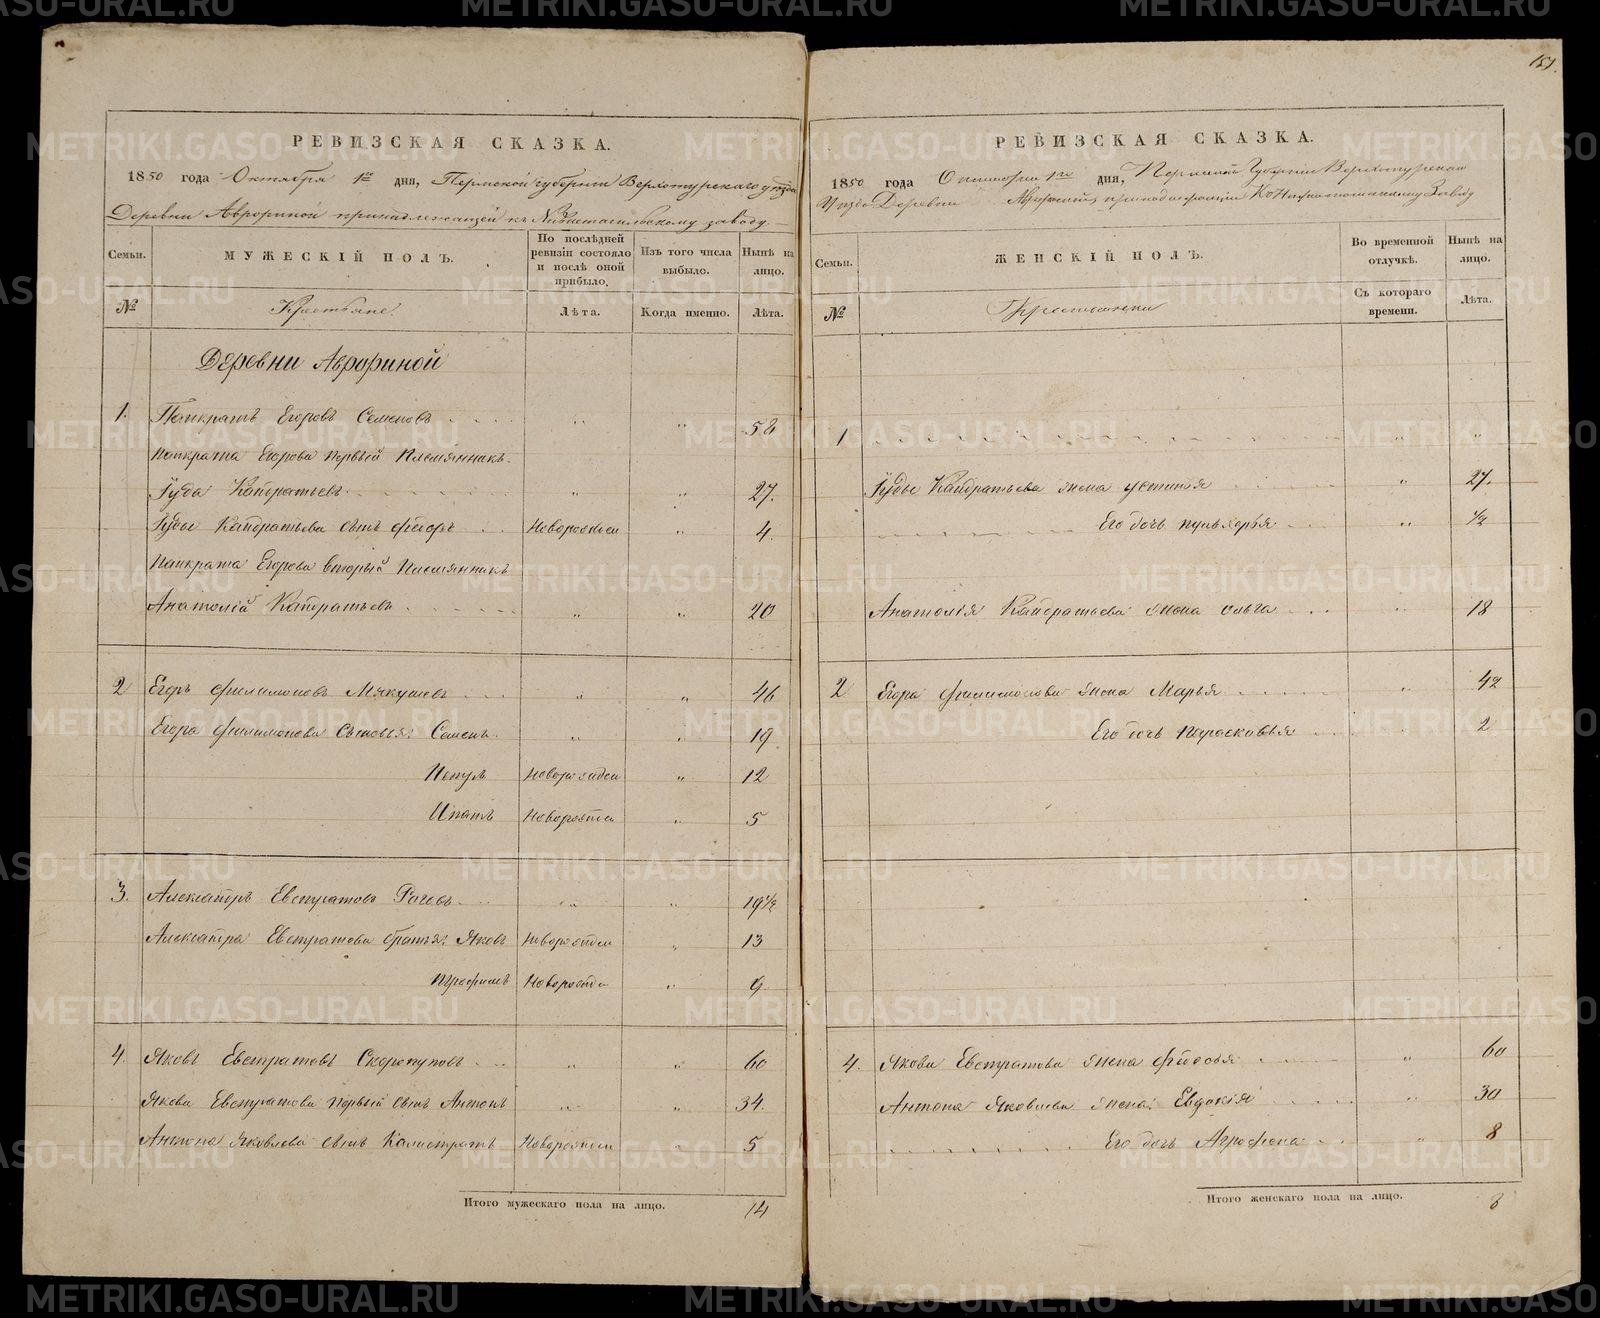 РЕВИЗСКАЯ СКАЗКА.
1850 года Октября 1го дня, Пермской губернии Верхотурскаго уѣзда
Деревни Аврориной принадлежащей къ Нижнетагильскому заводу
Семьи.
МУЖЕСКІЙ ПОЛЪ.
По послѣдней ревизіи состояло и послѣ оной прибыло.
Изъ того числа выбыло.
Нынѣ на лицо.
№
Крестьяне.
Лѣта.
Когда именно.
Лѣта.
Деревни Аврориной
1. Панкратъ Егоровъ Семеновъ 58
Панкрата Егорова первый племянникъ
Іуда Кандратьевъ 27.
Іуды Кандратьева сынъ Ѳедоръ Новорожден 4
Панкрата Егорова вторый племянникъ
Анатолій Кандратьевъ 20
2 Егоръ Филимоновъ Мякушевъ 46
Егора Филимонова сыновья: Семенъ 19
Новорожден 12
Ипатъ Новорожден 5
3. Александръ Евстратовъ 19½
Александра Евстратова братья: Яковъ Новорожден 13
Трофимъ Новорожден 9
4. Яковъ Евстратовъ Скоропуповъ 60
Якова Евстратова первый сынъ Антонъ 34.
Антона Яковлева сынъ Калистратъ Новорожден 5
Итого мужескаго пола на лицо. 14
151.
РЕВИЗСКАЯ СКАЗКА.
1850 года Октября 1го дня, Пермской Губерніи Верхотурскаго
Уѣзда Деревни Заводу
Семьи.
ЖЕНСКІЙ ПОЛЪ.
Во временной отлучкѣ.
Нынѣ на лицо.
№
Съ котораго времени.
Лѣта.
1
Іуды Кандратьева жена Устинья 27.
Его дочь Пульхерья ½
Анатолія Кандратьева жена Ольга 18
2 Егора Филимонова жена Марья 42
Его дочь Парасковья 2
4. Якова Евстратова жена Ѳедосья 60
Антона Яковлева жена: Евдокія 30
Его дочь Агрофена 8
Итого женскаго пола на лицо. 8
METRIKI.GASO-URAL.RU